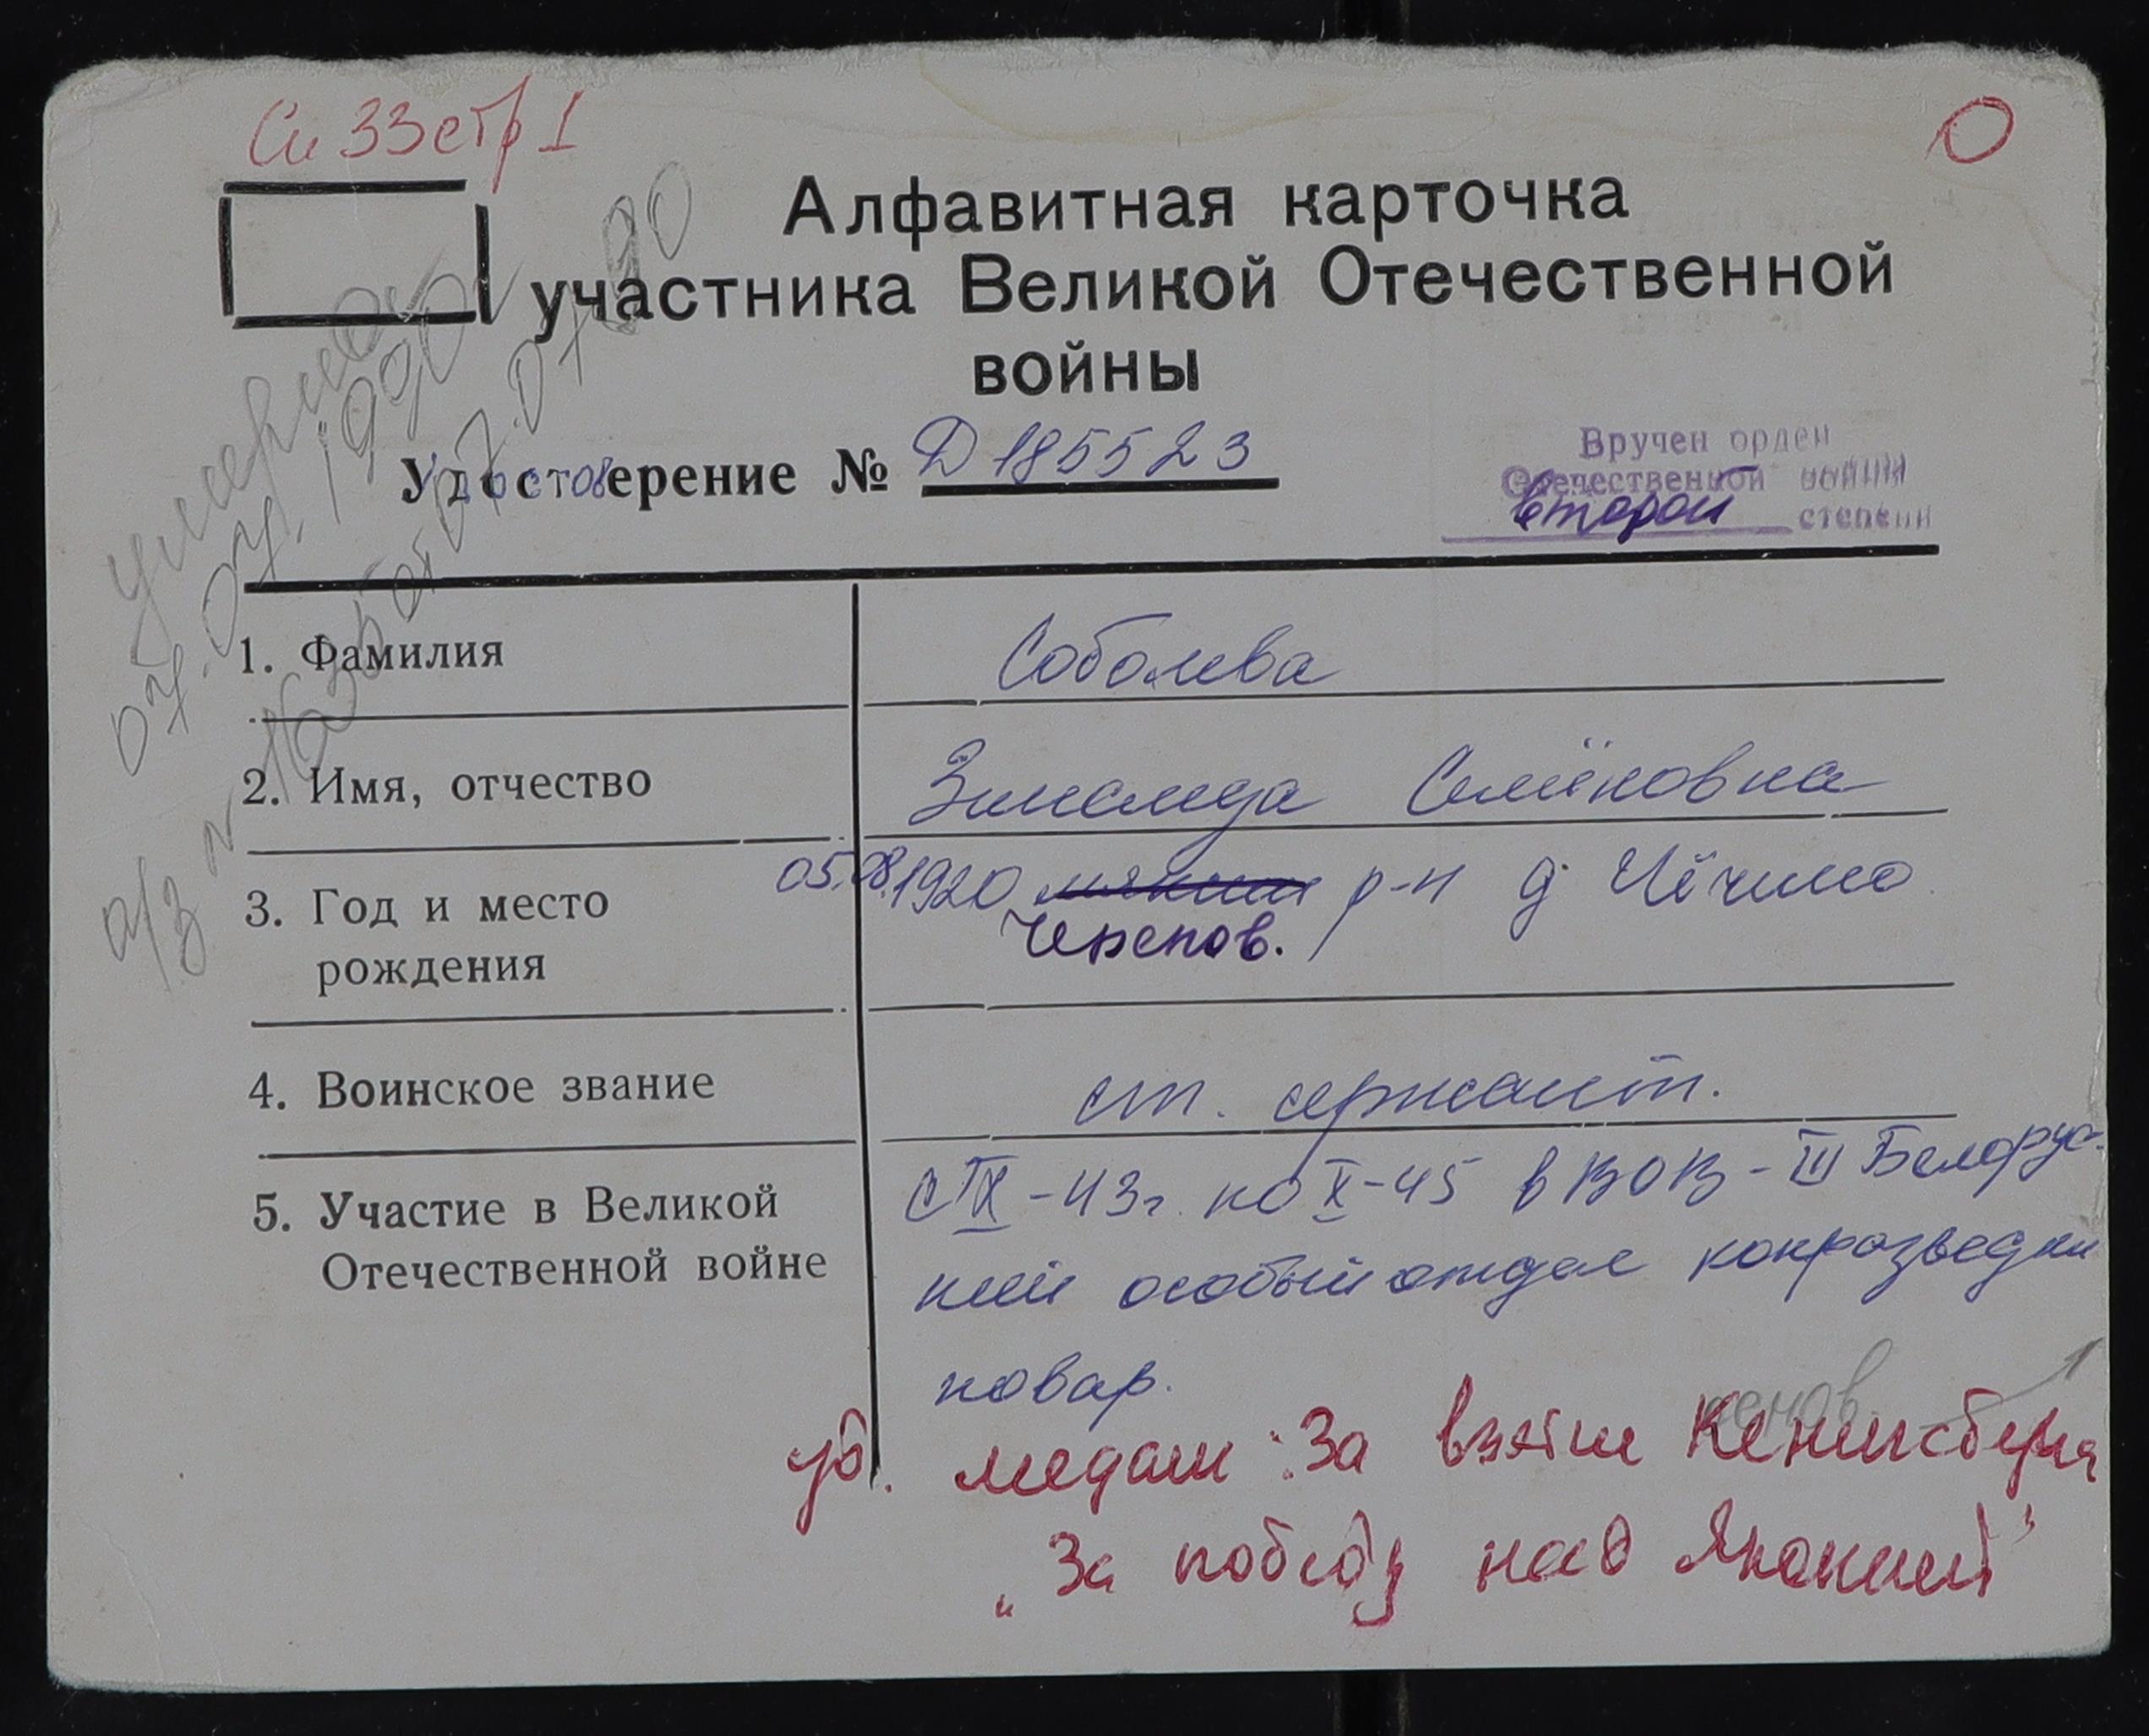 Сп 33 стр 1
0
Алфавитная карточка
участника Великой Отечественной
войны
умерла
07.04.1990
а/з № 163 от 07.07.90
Удостоверение № Д 185523
Вручен орден
Отечественной войны
второй степени
1. Фамилия Соболева
2. Имя, отчество Зинаида Семёновна
3. Год и место 05.08.1920 р-н д.
рождения Черепов.
4. Воинское звание ст. сержант.
5. Участие в Великой с IX-43г. по X-45 в ВОВ - III Белорус-
Отечественной войне кий особый отдел конрразведки
повар.
уд. медали: За взятие Кенигсберга
"За победу над Японией"